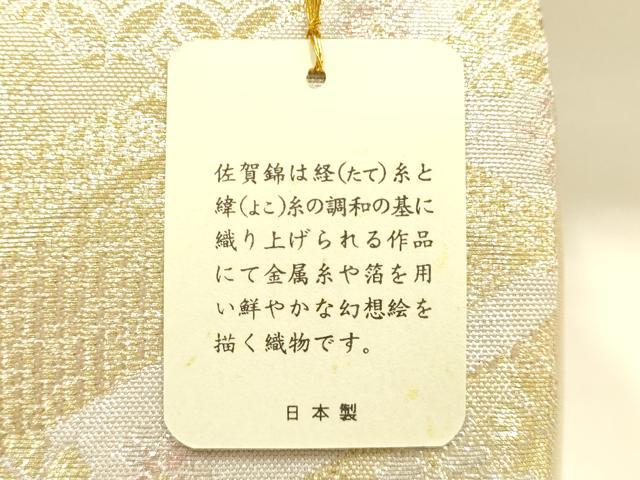 佐賀錦は経(たて)糸と
緯(よこ)糸の調和の基に
織り上げられる作品
にて金属糸や箔を用
い鮮やかな幻想絵を
描く織物です。
日本製